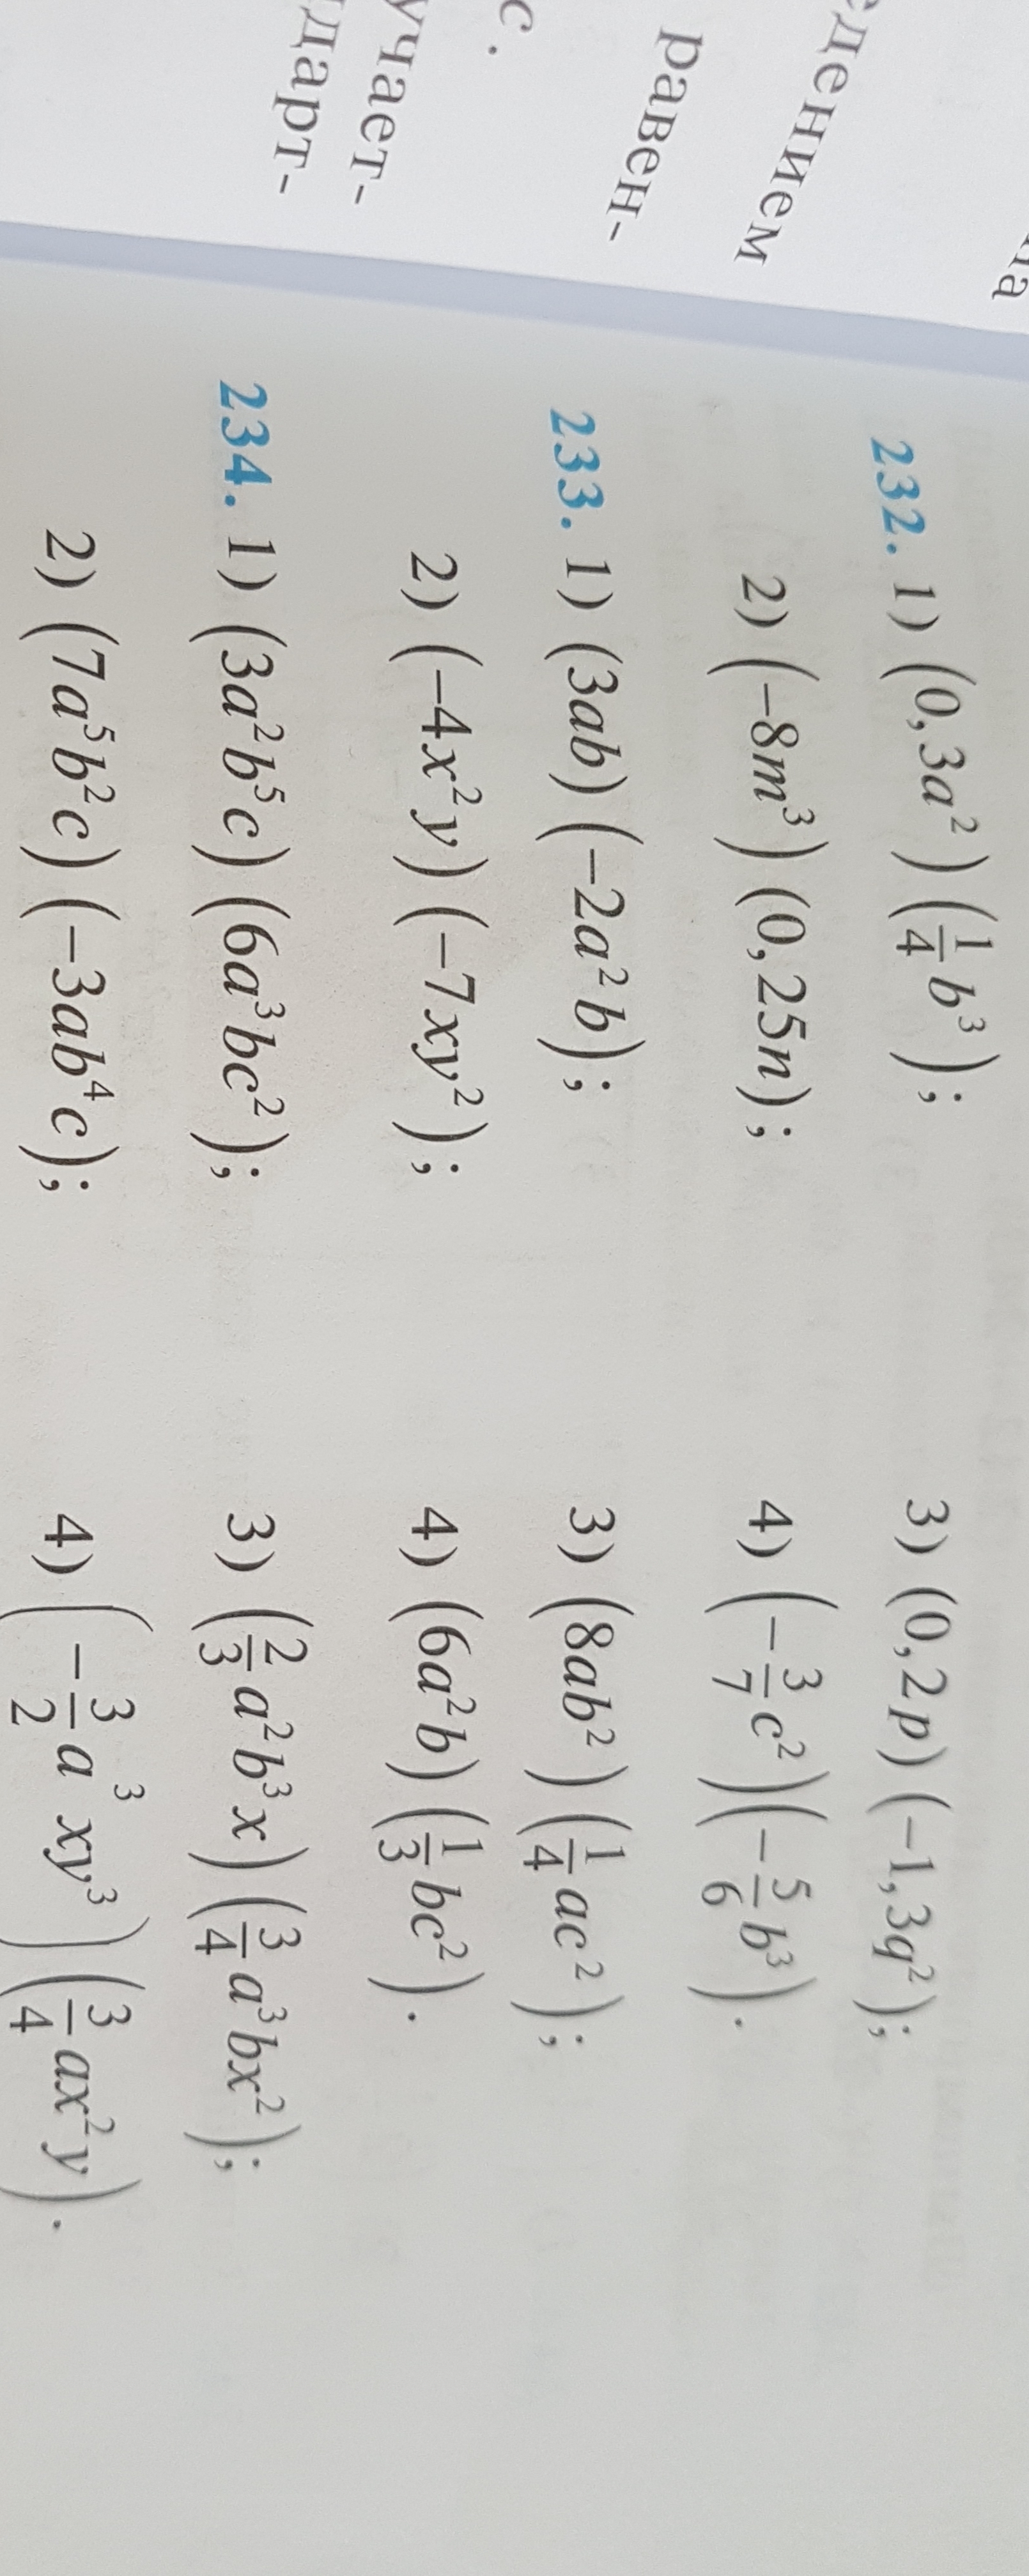 на
едением
равен-
с.
учает-
дарт-
232. 1) (0,3a²)(1/4 b³); 3) (0,2p)(−1,3q²);
2) (−8m³)(0,25n); 4) (−3/7 c²)(−5/6 b³).
233. 1) (3ab)(−2a²b); 3) (8ab²)(1/4 ac²);
2) (−4x²y)(−7xy²); 4) (6a²b)(1/3 bc²).
234. 1) (3a²b⁵c)(6a³bc²); 3) (2/3 a²b³x)(3/4 a³bx²);
2) (7a⁵b²c)(−3ab⁴c); 4) (−3/2 a³xy³)(3/4 ax²y).